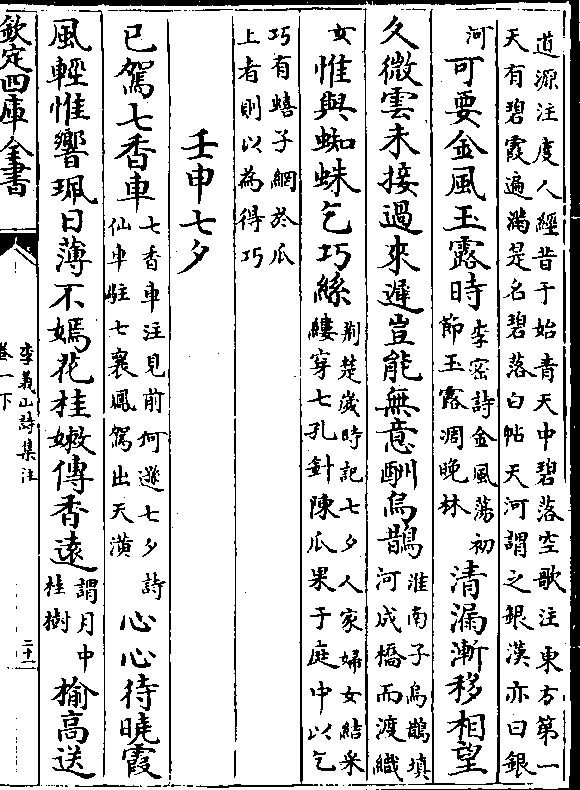 道源注度人經昔于始青天中碧落空歌注東方第一
天有碧霞遍滿是名碧落白帖天河謂之銀漢亦曰銀
河
可要金風玉露時
李密詩金風蕩初
節玉露凋晚林
清漏漸移相望
久微雲未接過來遲豈能無意酬烏鵲
淮南子烏鵲填
河成橋而渡織
女
惟與蜘蛛乞巧絲
荆楚歲時記七夕人家婦女結采
縷穿七孔針陳瓜果于庭中以乞
巧有蟢子網於瓜
上者則以為得巧
壬申七夕
已駕七香車
七香車注見前何遜七夕詩
仙車駐七襄鳳駕出天潢
心心待曉霞
風輕惟響珮日薄不嫣花桂嫩傳香遠
謂月中
桂樹
榆高送
欽定四庫全書
李義山詩集注
卷一下
二十一